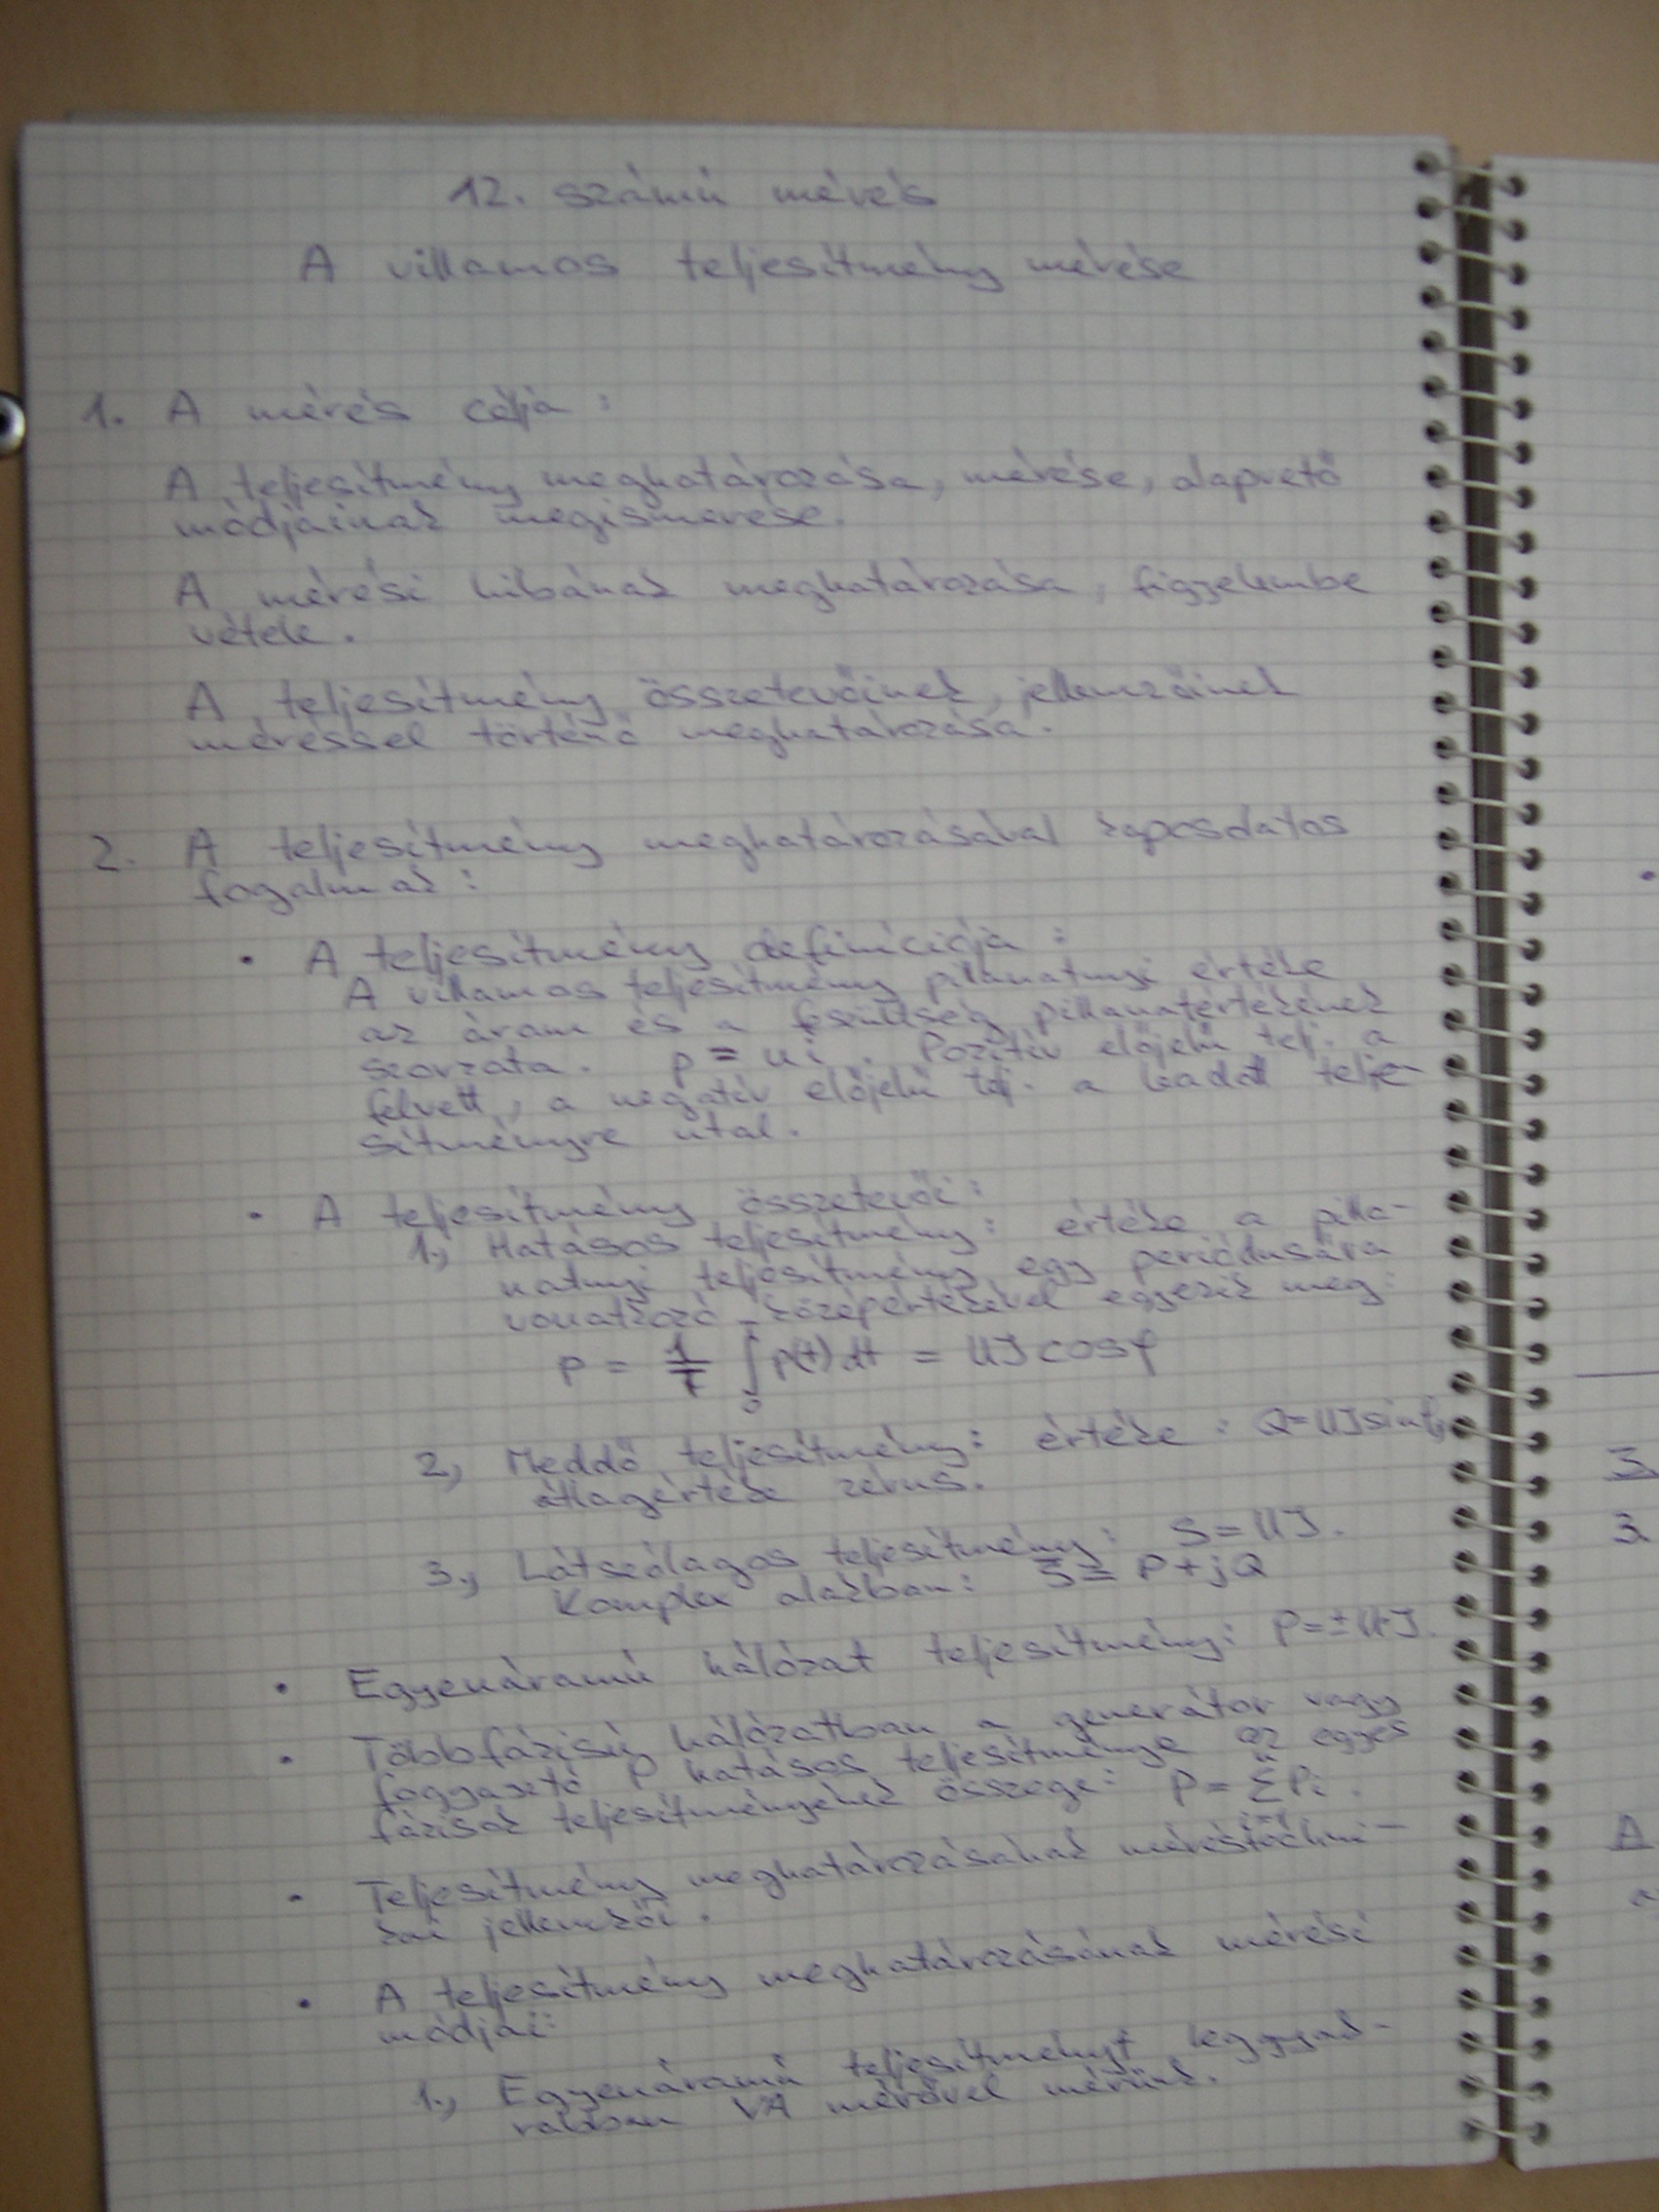 12. számú mérés
A villamos teljesítmény mérése
1. A mérés célja:
A teljesítmény meghatározása, mérése, alapvető
módjainak megismerése.
A mérési hibának meghatározása, figyelembe
vétele.
A teljesítmény összetevőinek, jellemzőinek
méréssel történő meghatározása.
2. A teljesítmény meghatározásával kaposolatos
fogalmak:
• A teljesítmény definíciója:
A villamos teljesítmény pillanatnyi értéke
az áram és a feszültség pillanatértékének
szorzata. p = ui. Pozitív előjelű telj. a
felvett, a negatív előjelű telj. a leadott telje-
sítményre utal.
• A teljesítmény összetevői:
1., Hatásos teljesítmény: értéke a pilla-
natnyi teljesítmény egy periódusára
vonatkozó középértékével egyezik meg:
P = 1/T ∫₀ᵀ p(t) dt = UI cosφ
2., Meddő teljesítmény: értéke: Q=UI sinφ;
átlagértéke zérus.
3., Látszólagos teljesítmény: S=UI.
Komplex alakban: S̅ = P+jQ
• Egyenáramú hálózat teljesítmény: P=±UI.
• Többfázisú hálózatban a generátor vagy
fogyasztó P hatásos teljesítménye az egyes
fázisok teljesítményének összege: P = Σⁿᵢ₌₁ Pi.
• Teljesítmény meghatározásának méréstechni-
kai jellemzői.
• A teljesítmény meghatározásának mérési
módjai:
1., Egyenáramú teljesítményt leggyak-
rabban VA mérővel mérünk.
3.
3.
A